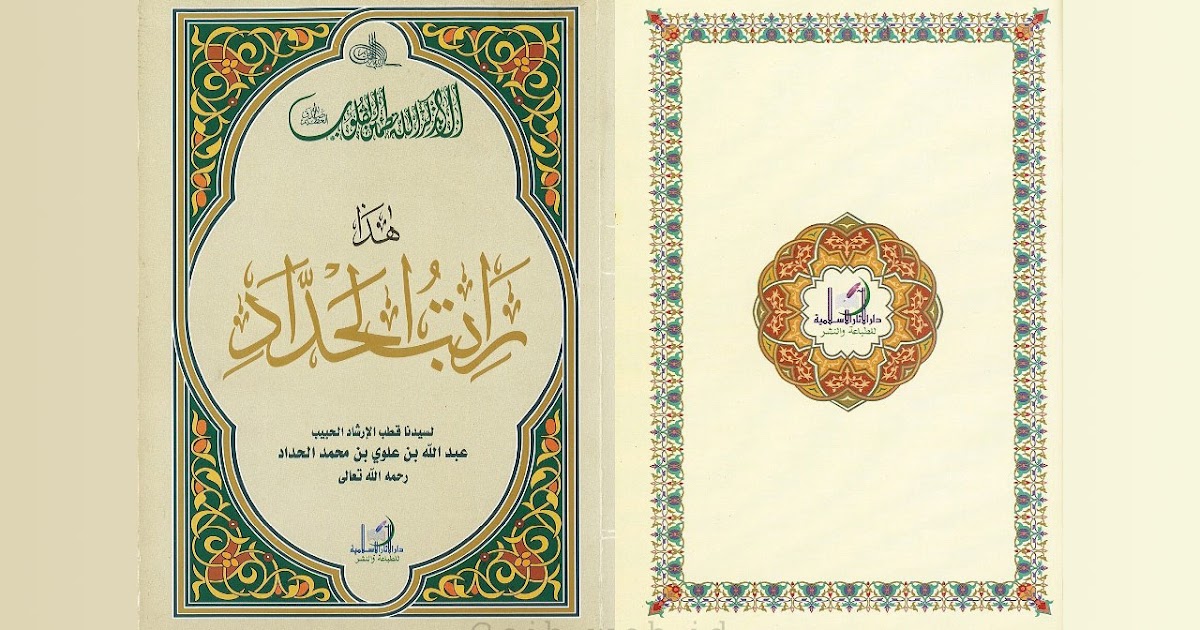 ألا بذكر الله تطمئن القلوب
هٰذَا
رَاتِبُ الْحَدَّادِ
لسيدنا قطب الإرشاد الحبيب
عبد الله بن علوي بن محمد الحداد
رحمه الله تعالى
دار الآثار الإسلامية
للطباعة والنشر
دار الآثار الإسلامية
للطباعة والنشر